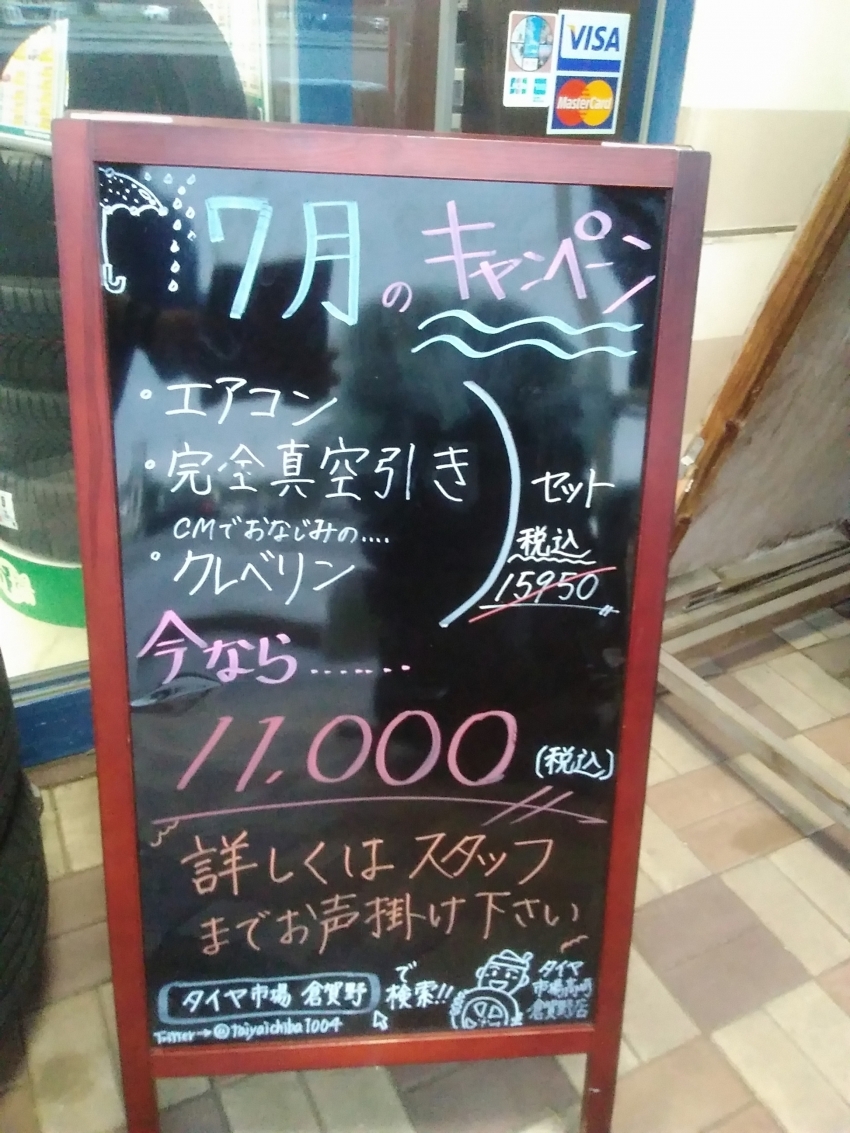 VISA
MasterCard
7月のキャンペーン
エアコン
完全真空引き
CMでおなじみの....
クレベリン
セット
税込
15950
今なら.......
11,000 (税込)
詳しくはスタッフ
までお声掛け下さい
タイヤ市場 倉賀野 で検索!!
Twitter→@taiyaichiba1004
タイヤ
市場高崎
倉賀野店